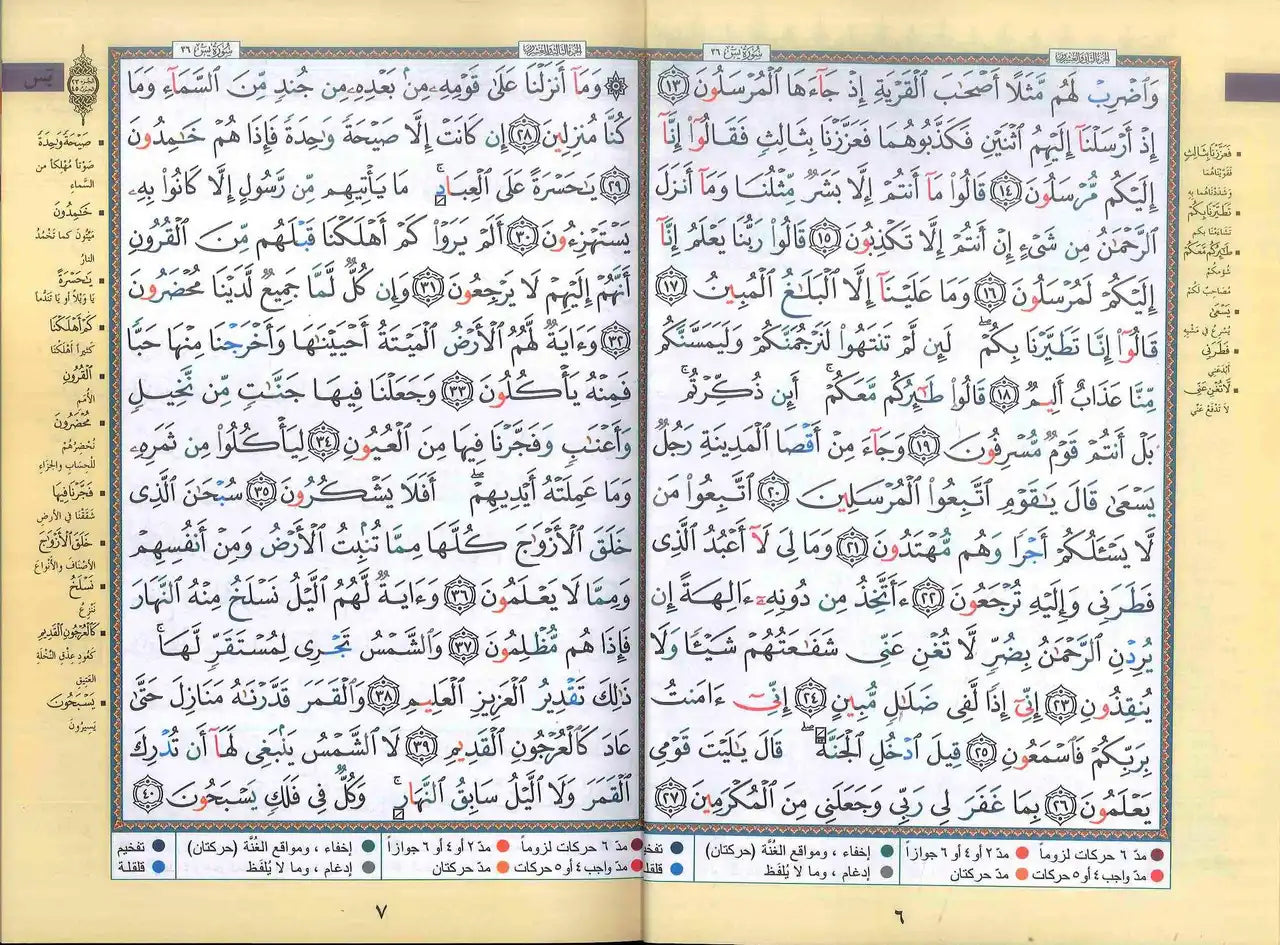 سُورَةُ يسٓ ٣٦
وَٱضْرِبْ لَهُم مَّثَلًا أَصْحَٰبَ ٱلْقَرْيَةِ إِذْ جَآءَهَا ٱلْمُرْسَلُونَ ١٣
إِذْ أَرْسَلْنَآ إِلَيْهِمُ ٱثْنَيْنِ فَكَذَّبُوهُمَا فَعَزَّزْنَا بِثَالِثٍ فَقَالُوٓا۟ إِنَّآ
إِلَيْكُم مُّرْسَلُونَ ١٤ قَالُوا۟ مَآ أَنتُمْ إِلَّا بَشَرٌ مِّثْلُنَا وَمَآ أَنزَلَ
ٱلرَّحْمَٰنُ مِن شَىْءٍ إِنْ أَنتُمْ إِلَّا تَكْذِبُونَ ١٥ قَالُوا۟ رَبُّنَا يَعْلَمُ إِنَّآ
إِلَيْكُمْ لَمُرْسَلُونَ ١٦ وَمَا عَلَيْنَآ إِلَّا ٱلْبَلَٰغُ ٱلْمُبِينُ ١٧
قَالُوٓا۟ إِنَّا تَطَيَّرْنَا بِكُمْ ۖ لَئِن لَّمْ تَنتَهُوا۟ لَنَرْجُمَنَّكُمْ وَلَيَمَسَّنَّكُم
مِّنَّا عَذَابٌ أَلِيمٌ ١٨ قَالُوا۟ طَٰٓئِرُكُم مَّعَكُمْ ۚ أَئِن ذُكِّرْتُم ۚ
بَلْ أَنتُمْ قَوْمٌ مُّسْرِفُونَ ١٩ وَجَآءَ مِنْ أَقْصَا ٱلْمَدِينَةِ رَجُلٌ
يَسْعَىٰ قَالَ يَٰقَوْمِ ٱتَّبِعُوا۟ ٱلْمُرْسَلِينَ ٢٠ ٱتَّبِعُوا۟ مَن
لَّا يَسْـَٔلُكُمْ أَجْرًا وَهُم مُّهْتَدُونَ ٢١ وَمَا لِىَ لَآ أَعْبُدُ ٱلَّذِى
فَطَرَنِى وَإِلَيْهِ تُرْجَعُونَ ٢٢ ءَأَتَّخِذُ مِن دُونِهِۦٓ ءَالِهَةً إِن
يُرِدْنِ ٱلرَّحْمَٰنُ بِضُرٍّ لَّا تُغْنِ عَنِّى شَفَٰعَتُهُمْ شَيْـًٔا وَلَا
يُنقِذُونِ ٢٣ إِنِّىٓ إِذًا لَّفِى ضَلَٰلٍ مُّبِينٍ ٢٤ إِنِّىٓ ءَامَنتُ
بِرَبِّكُمْ فَٱسْمَعُونِ ٢٥ قِيلَ ٱدْخُلِ ٱلْجَنَّةَ ۖ قَالَ يَٰلَيْتَ قَوْمِى
يَعْلَمُونَ ٢٦ بِمَا غَفَرَ لِى رَبِّى وَجَعَلَنِى مِنَ ٱلْمُكْرَمِينَ ٢٧
فَعَزَّزْنَا بِثَالِثٍ
فَقَوَّيْنَاهُمَا
وَشَدَدْنَاهُمَا بِهِ
تَطَيَّرْنَا بِكُمْ
تَشَاءَمْنَا بِكُم
طَٰٓئِرُكُم مَّعَكُمْ
شُؤمُكُمْ
مُصَاحِبٌ لَكُمْ
يَسْعَىٰ
يُسْرِعُ فِي مَشْيِهِ
فَطَرَنِى
أَبْدَعَنِي
لَّا تُغْنِ عَنِّى
لَا تَدْفَعُ عَنِّي
مدّ ٦ حركات لزوماً مدّ ٢ أو ٤ أو ٦ جوازاً إخفاء ، ومواقع الغُنَّة (حركتان)
مدّ واجب ٤ أو ٥ حركات مدّ حركتان إدغام ، وما لا يُلفَظ
٦
سُورَةُ يسٓ ٣٦
يسٓ
وَمَآ أَنزَلْنَا عَلَىٰ قَوْمِهِۦ مِنۢ بَعْدِهِۦ مِن جُندٍ مِّنَ ٱلسَّمَآءِ وَمَا
كُنَّا مُنزِلِينَ ٢٨ إِن كَانَتْ إِلَّا صَيْحَةً وَٰحِدَةً فَإِذَا هُمْ خَٰمِدُونَ
٢٩ يَٰحَسْرَةً عَلَى ٱلْعِبَادِ ۚ مَا يَأْتِيهِم مِّن رَّسُولٍ إِلَّا كَانُوا۟ بِهِۦ
يَسْتَهْزِءُونَ ٣٠ أَلَمْ يَرَوْا۟ كَمْ أَهْلَكْنَا قَبْلَهُم مِّنَ ٱلْقُرُونِ
أَنَّهُمْ إِلَيْهِمْ لَا يَرْجِعُونَ ٣١ وَإِن كُلٌّ لَّمَّا جَمِيعٌ لَّدَيْنَا مُحْضَرُونَ
٣٢ وَءَايَةٌ لَّهُمُ ٱلْأَرْضُ ٱلْمَيْتَةُ أَحْيَيْنَٰهَا وَأَخْرَجْنَا مِنْهَا حَبًّا
فَمِنْهُ يَأْكُلُونَ ٣٣ وَجَعَلْنَا فِيهَا جَنَّٰتٍ مِّن نَّخِيلٍ
وَأَعْنَٰبٍ وَفَجَّرْنَا فِيهَا مِنَ ٱلْعُيُونِ ٣٤ لِيَأْكُلُوا۟ مِن ثَمَرِهِۦ
وَمَا عَمِلَتْهُ أَيْدِيهِمْ ۖ أَفَلَا يَشْكُرُونَ ٣٥ سُبْحَٰنَ ٱلَّذِى
خَلَقَ ٱلْأَزْوَٰجَ كُلَّهَا مِمَّا تُنۢبِتُ ٱلْأَرْضُ وَمِنْ أَنفُسِهِمْ
وَمِمَّا لَا يَعْلَمُونَ ٣٦ وَءَايَةٌ لَّهُمُ ٱلَّيْلُ نَسْلَخُ مِنْهُ ٱلنَّهَارَ
فَإِذَا هُم مُّظْلِمُونَ ٣٧ وَٱلشَّمْسُ تَجْرِى لِمُسْتَقَرٍّ لَّهَا ۚ
ذَٰلِكَ تَقْدِيرُ ٱلْعَزِيزِ ٱلْعَلِيمِ ٣٨ وَٱلْقَمَرَ قَدَّرْنَٰهُ مَنَازِلَ حَتَّىٰ
عَادَ كَٱلْعُرْجُونِ ٱلْقَدِيمِ ٣٩ لَا ٱلشَّمْسُ يَنۢبَغِى لَهَآ أَن تُدْرِكَ
ٱلْقَمَرَ وَلَا ٱلَّيْلُ سَابِقُ ٱلنَّهَارِ ۚ وَكُلٌّ فِى فَلَكٍ يَسْبَحُونَ ٤٠
صَيْحَةً وَٰحِدَةً
صَوْتاً مُهْلِكاً من
السَّماءِ
خَٰمِدُونَ
مَيِّتُونَ كما تَخْمُدُ
النارُ
يَٰحَسْرَةً
يَا وَيْلاً أو يَا تَنَدُّماً
كَمْ أَهْلَكْنَا
كَثِيراً أَهْلَكْنَا
ٱلْقُرُونِ
الأُمَمِ
مُحْضَرُونَ
نُحْضِرُهُمْ
لِلْحِسَابِ والجَزَاءِ
فَجَّرْنَا فِيهَا
شَقَقْنَا فِي الأرضِ
خَلَقَ ٱلْأَزْوَٰجَ
الأصْنافَ والأَنْواعَ
نَسْلَخُ
نَنْزِعُ
كَٱلْعُرْجُونِ ٱلْقَدِيمِ
كَعُودِ عِذْقِ النَّخْلَةِ
العَتِيقِ
يَسْبَحُونَ
يَسِيرُونَ
مدّ ٦ حركات لزوماً مدّ ٢ أو ٤ أو ٦ جوازاً إخفاء ، ومواقع الغُنَّة (حركتان) تفخيم
مدّ واجب ٤ أو ٥ حركات مدّ حركتان إدغام ، وما لا يُلفَظ قلقلة
٧